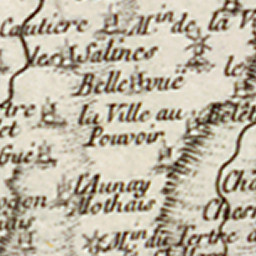 Cautiere
M.in de la V
les Salines
Belle vuë
le
la Ville au
Pouvoir
Belêt
tre
et
Gué
l'Aunay
Mothais
Chê
Ches
M.in du Tertre